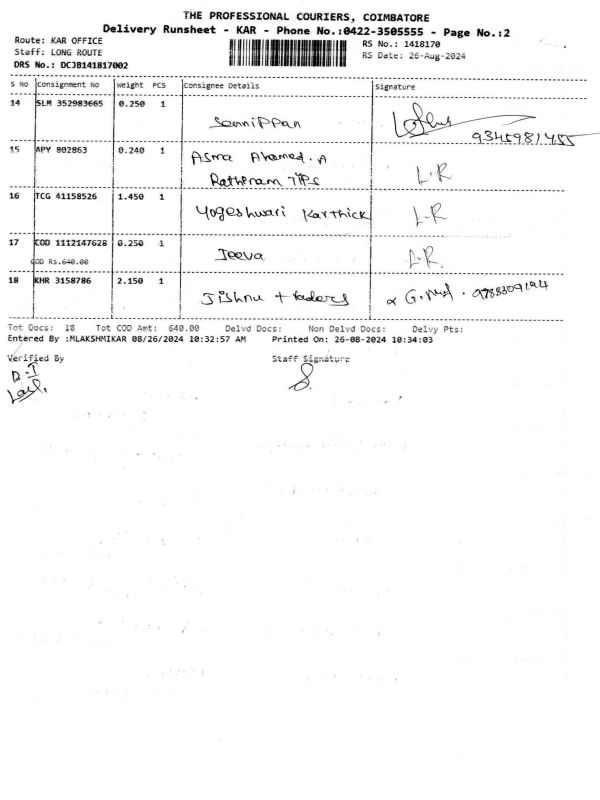 THE PROFESSIONAL COURIERS, COIMBATORE
Delivery Runsheet - KAR - Phone No.:0422-3505555 - Page No.:2
Route: KAR OFFICE
Staff: LONG ROUTE
DRS No.: DCJB141817002
RS No.: 1418170
RS Date: 26-Aug-2024
S No Consignment No Weight PCS Consignee Details Signature
14 SLM 352983665 0.250 1
Sennippan
9345981455
15 APY 802863 0.240 1 Asma Ahamed. A
Rathinam TIPS L.R
16 TCG 41158526 1.450 1 Yogeshwari Karthick L-R
17 COD 1112147628 0.250 1 Jeeva L.R.
COD Rs.640.00
18 KHR 3158786 2.150 1 Jishnu traders
Tot Docs: 18 Tot COD Amt: 640.00 Delvd Docs: Non Delvd Docs: Delvy Pts:
Entered By :MLAKSHMIKAR 08/26/2024 10:32:57 AM Printed On: 26-08-2024 10:34:03
Verified By Staff Signature